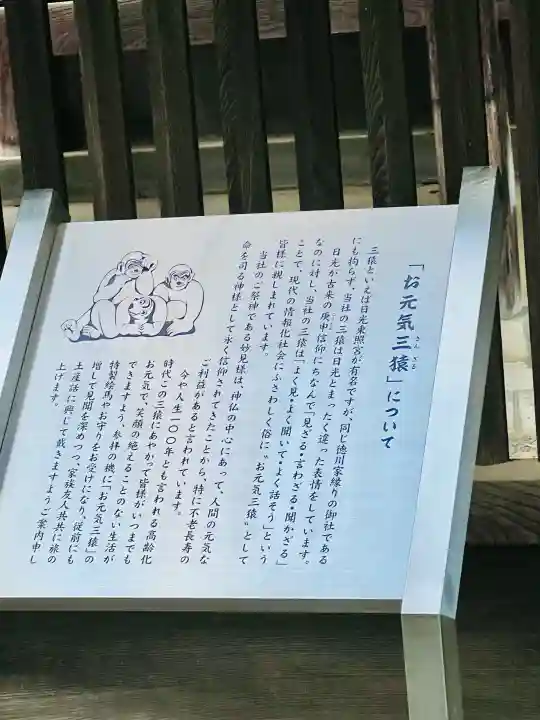 「お元気三猿」について
さん ざる
三猿といえば日光東照宮が有名ですが、同じ徳川家縁りの御社である
にも拘らず、当社の三猿は日光とまったく違った表情をしています。
日光が古来の庚申信仰にちなんで「見ざる・言わざる・聞かざる」
なのに対し、当社の三猿は「よく見・よく聞いて・よく話そう」という
ことで、現代の情報化社会にふさわしく俗に〝お元気三猿〟として
皆様に親しまれています。
当社のご祭神である妙見様は、神仏の中心にあって、人間の元気な
命を司る神様として永く信仰されてきたことから、特に不老長寿の
ご利益があると言われています。
今や人生一〇〇年とも言われる高齢化
時代この三猿にあやかって皆様がいつまでも
お元気で、笑顔の絶えることのない生活が
できますよう、参拝の機に「お元気三猿」の
特製絵馬やお守りをお受けになり、従前にも
増して見聞を深めつつ、家族友人共共に旅の
土産話に興じて戴きますようご案内申し
上げます。